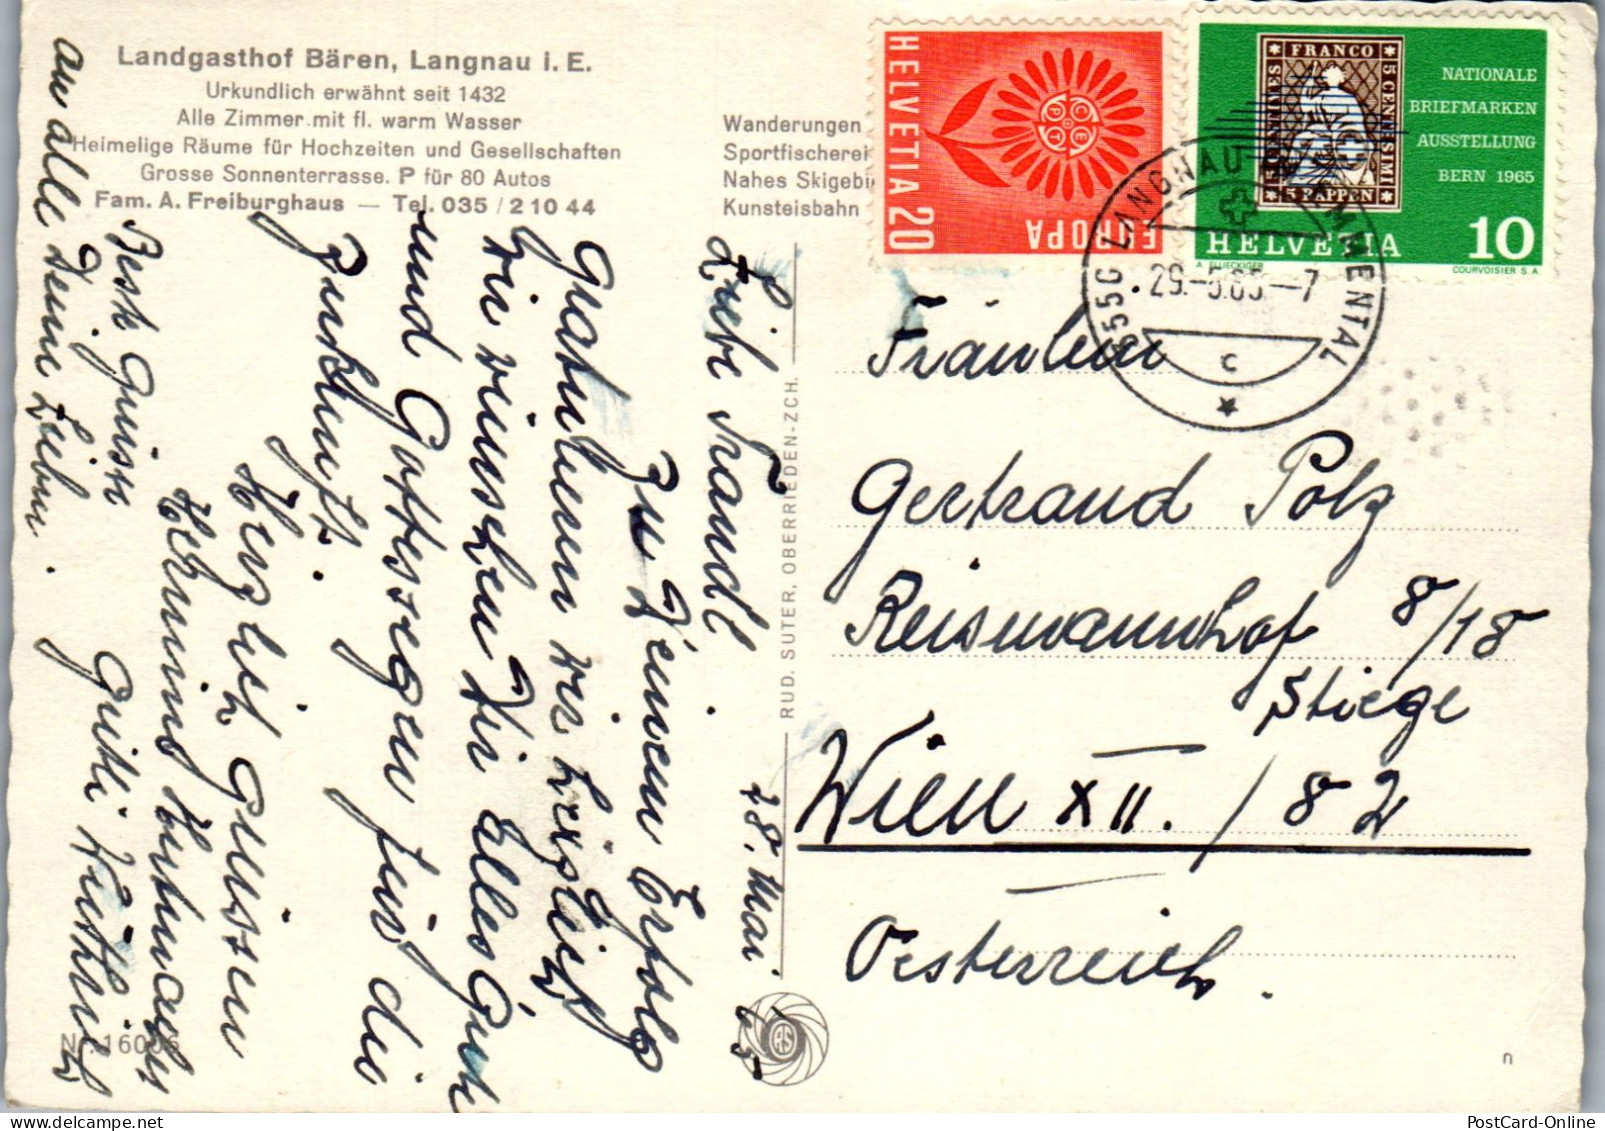 Landgasthof Bären, Langnau i. E.
Urkundlich erwähnt seit 1432
Alle Zimmer mit fl. warm Wasser
Heimelige Räume für Hochzeiten und Gesellschaften
Grosse Sonnenterrasse. P für 80 Autos
Fam. A. Freiburghaus — Tel. 035 / 2 10 44
Wanderungen
Sportfischerei
Nahes Skigebi
Kunsteisbahn
HELVETIA 20
EUROPA
CEPT
FRANCO
5 CENTESIMI
5 RAPPEN
5 CENTIMES
NATIONALE
BRIEFMARKEN
AUSSTELLUNG
BERN 1965
HELVETIA 10
COURVOISIER S.A.
3550 LANGNAU IM EMMENTAL
29.-5.65-7
C
28. Mai 65
Liebe Traudl.
Zu Deinem Erfolg
gratulieren wir herzlich
Wir wünschen Dir alles Gute
und Gottessegen für die
Zukunft.
Herzlich Grüssen
Beste Grüsse
an alle Deine Lieben.
Fräulein
Gertraud Polz
Reismannhof 8/18
Stiege
Wien XII. / 82
Oesterreich.
RUD. SUTER, OBERRIEDEN-ZCH.
RS
Nr. 16006
n
PostCard-Online